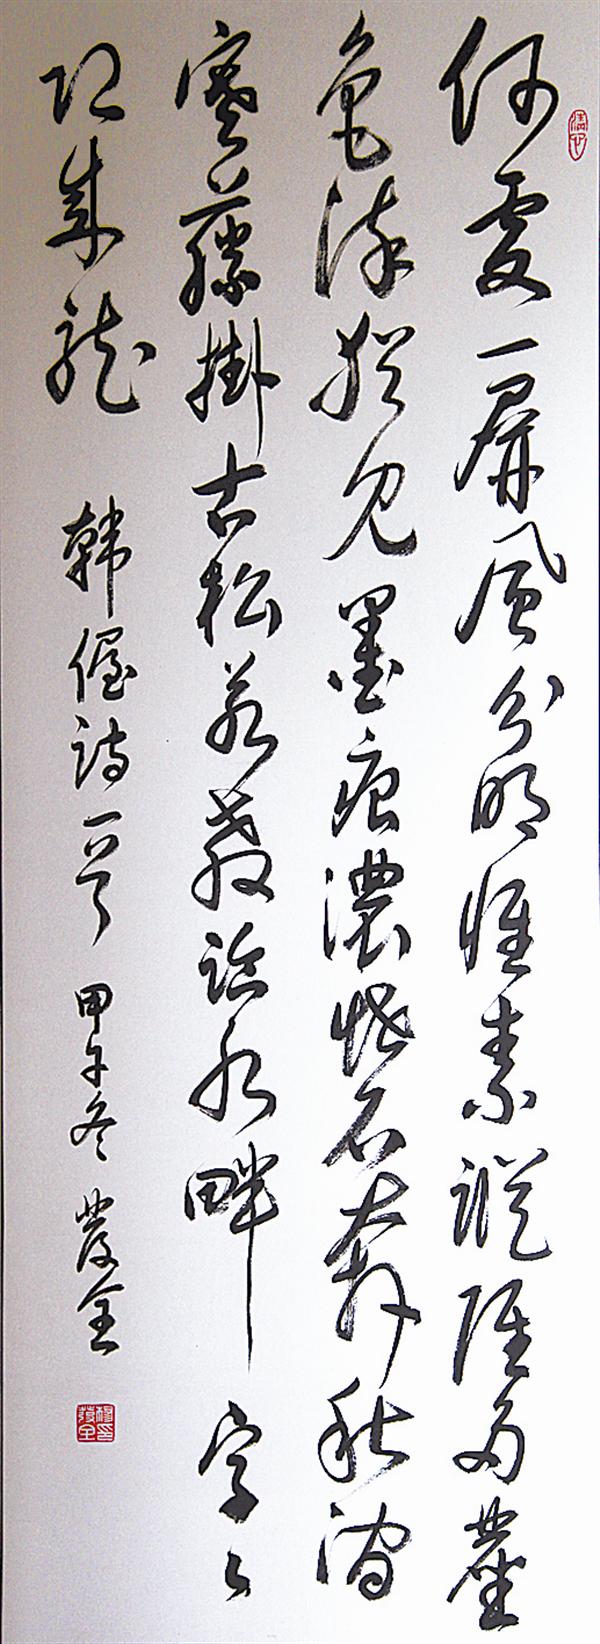 何處一屏風分明懷素蹤雖多塵
色染猶見墨痕濃怪石奔秋澗
寒藤掛古松若教臨水畔字々
恐成龍 韓偓詩一首 甲午冬 發全